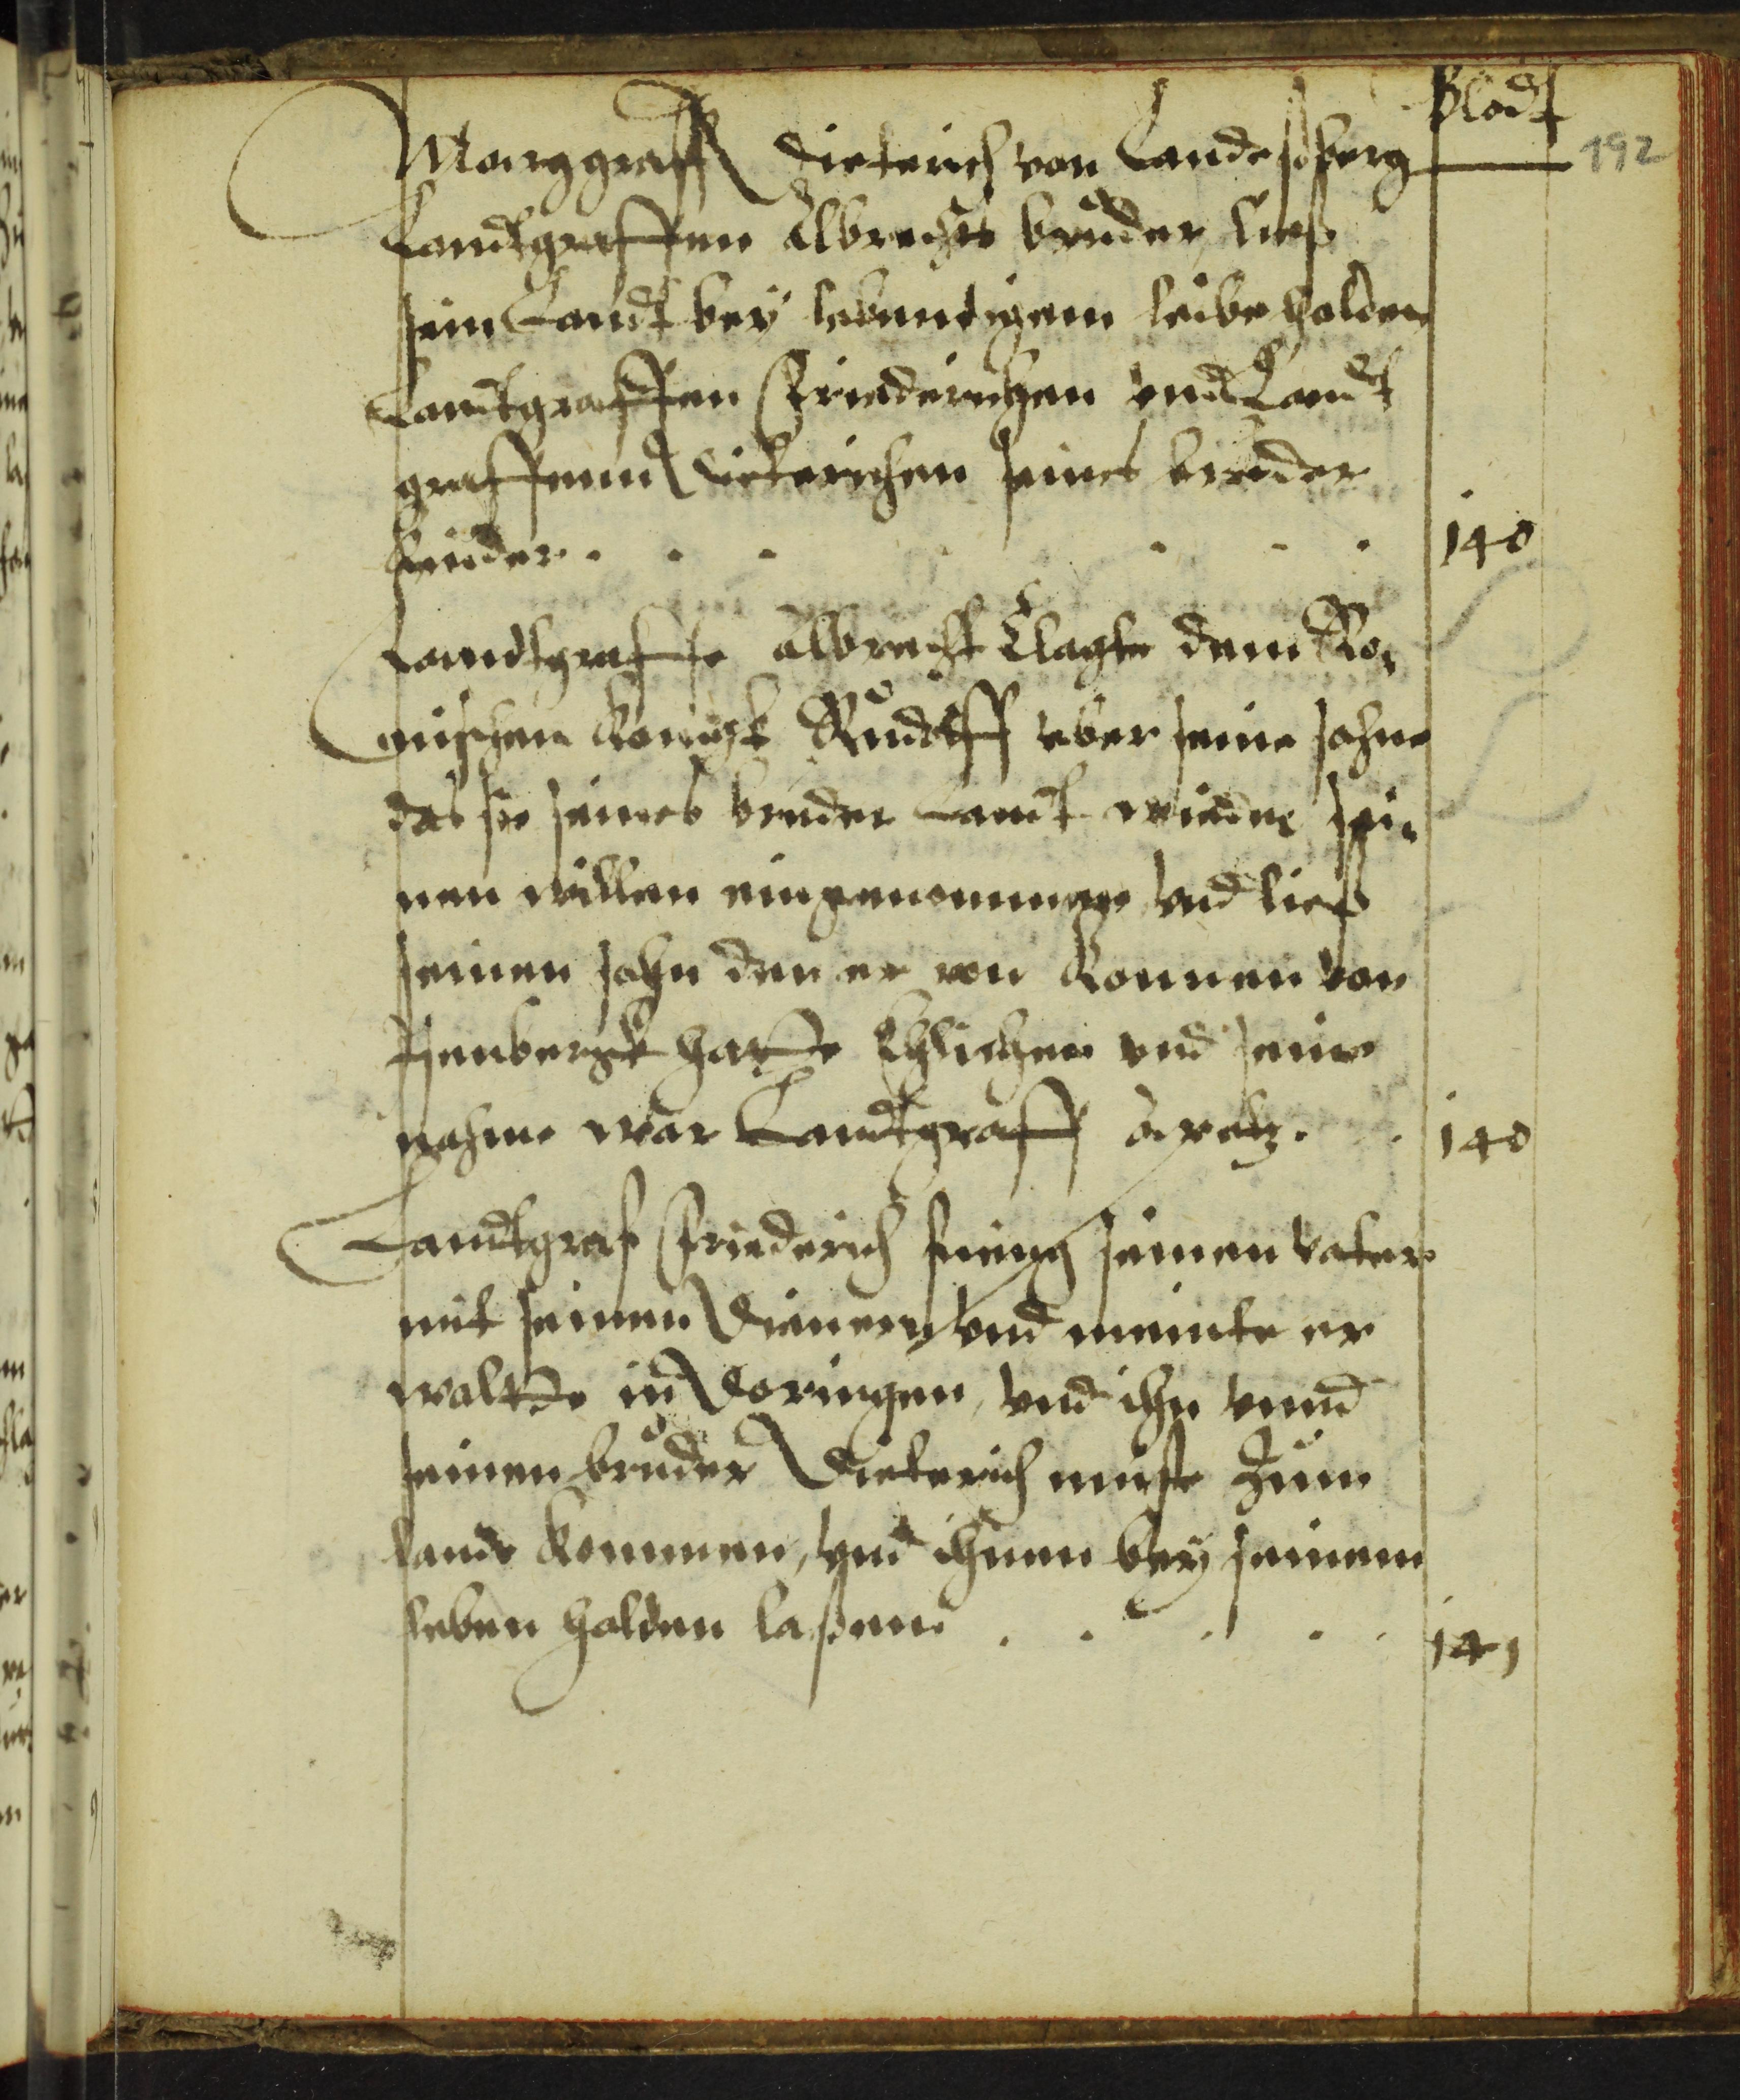 Bladt
192
Marggraff Dieterich von Landeßberg
Landtgraffen Albrechts bruder, ließ
sein Landt bey lebendigem leibe halden
Landtgraffen Friederichen vnd Landt
graffenn Dieterichen seines bruder
kinder. . . . . . . 140
Landtgraffe albrecht Clagte dem Ro,
mischen konigk Rudolff vber seine sohne
das sie seines bruder Landt wieder sei,
nen willen eingenommen, vnd ließ
seinen sohn den er von Konnen von
Isenbergk hatte Ehlichen vnd sein
nahme war Landtgraff Apetz. . 140
Landtgraf Friederich fiengk seinen vater
mit seinen Dienern, vnd meinte er
woltte in Doringen, vnd ihn vnnd
seinen bruder Dieterich muste zum
lande kommen, vnd ihnen bey seinem
leben halden laßenn . . . . . 141